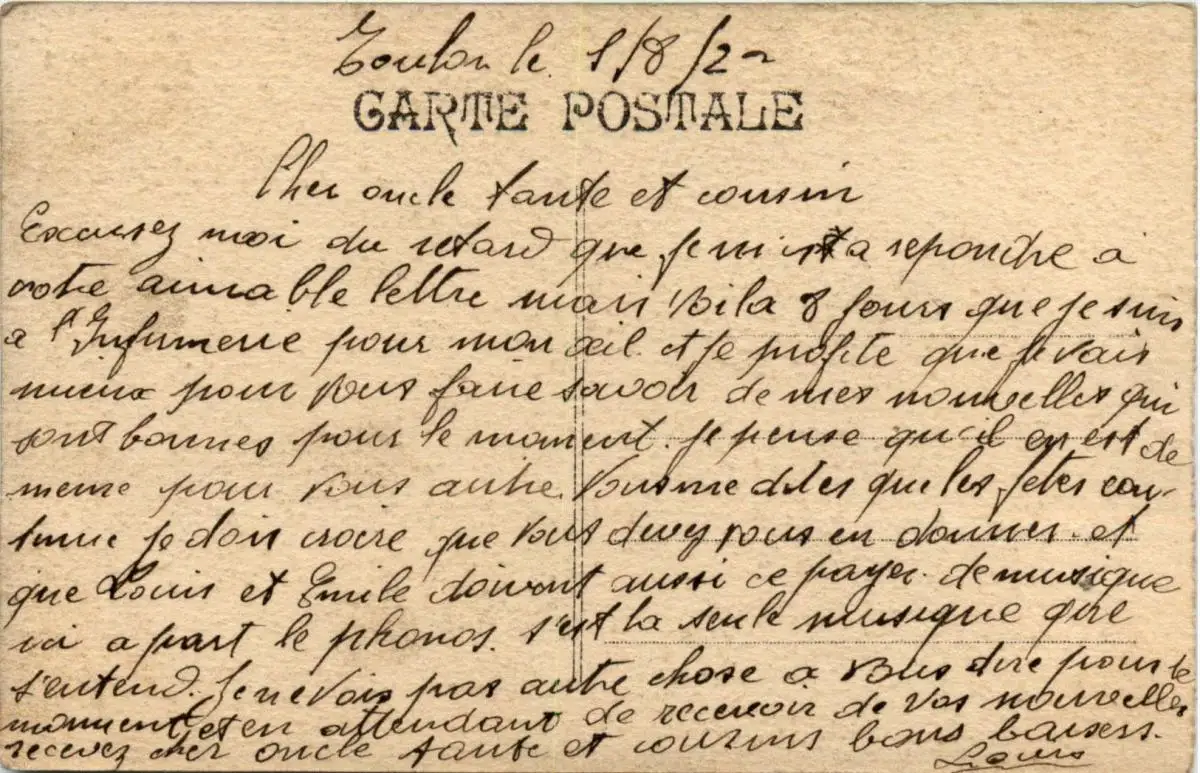 Toulon le 1/8/22
CARTE POSTALE
Cher oncle tante et cousin
Excusez moi du retard que je mist a repondre a
votre aimable lettre mais voila 8 jours que je suis
a l'Infirmerie pour mon œil. et je profite que je vais
mieux pour vous faire savoir de mes nouvelles qui
sont bonnes pour le moment. je pense qu'il en est de
meme pour vous autre. Vous me dites que les fetes con-
tinue je dois croire que vous devez vous en donner. et
que Louis et Emile doivent aussi ce payer. de musique
ici a part le phonos. s'est la seule musique que
s'entend. Je ne vois pas autre chose a vous dire pour le
moment, et en attendant de recevoir de vos nouvelles
recevez cher oncle tante et cousins bons baisers.
Louis